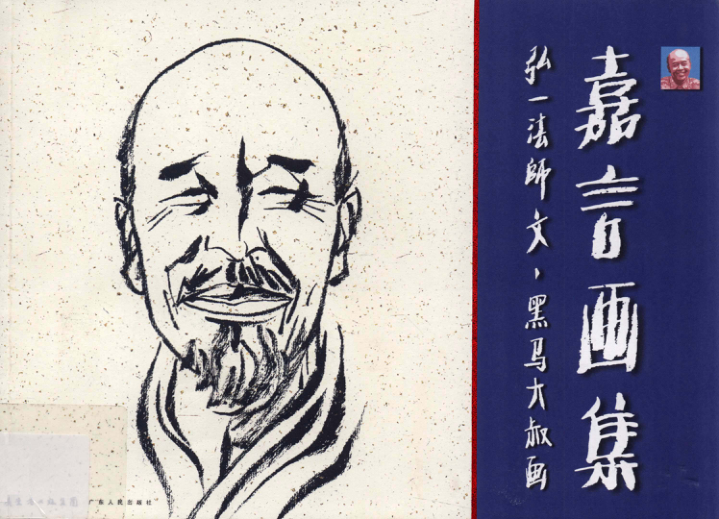 嘉言画集
弘一法師文、黑马大叔画
广东人民出版社